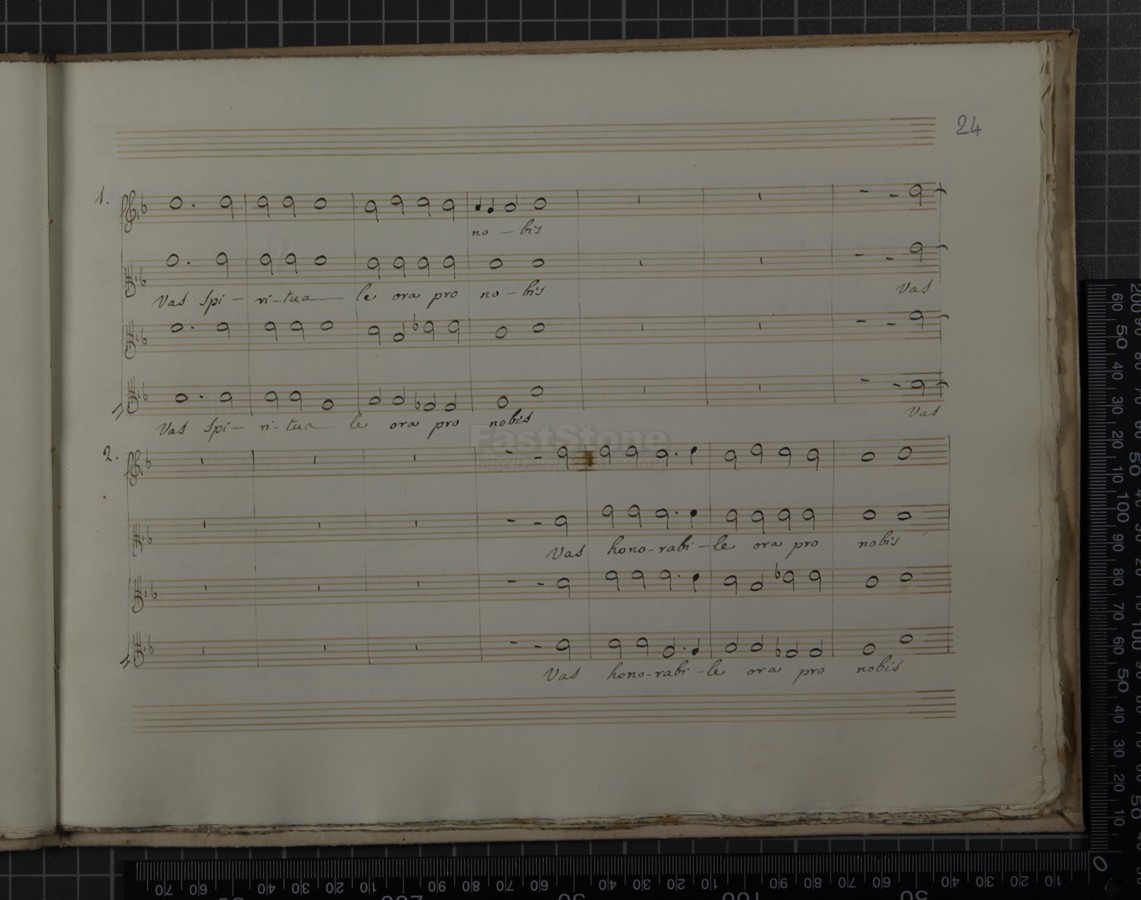 24
1.
no - bis
Vas Spi - ri-tua - le ora pro no - bis Vas
Vas Spi - ri-tua - le ora pro nobis Vas
FastStone
2.
Vas hono-rabi-le ora pro nobis
Vas hono-rabi-le ora pro nobis